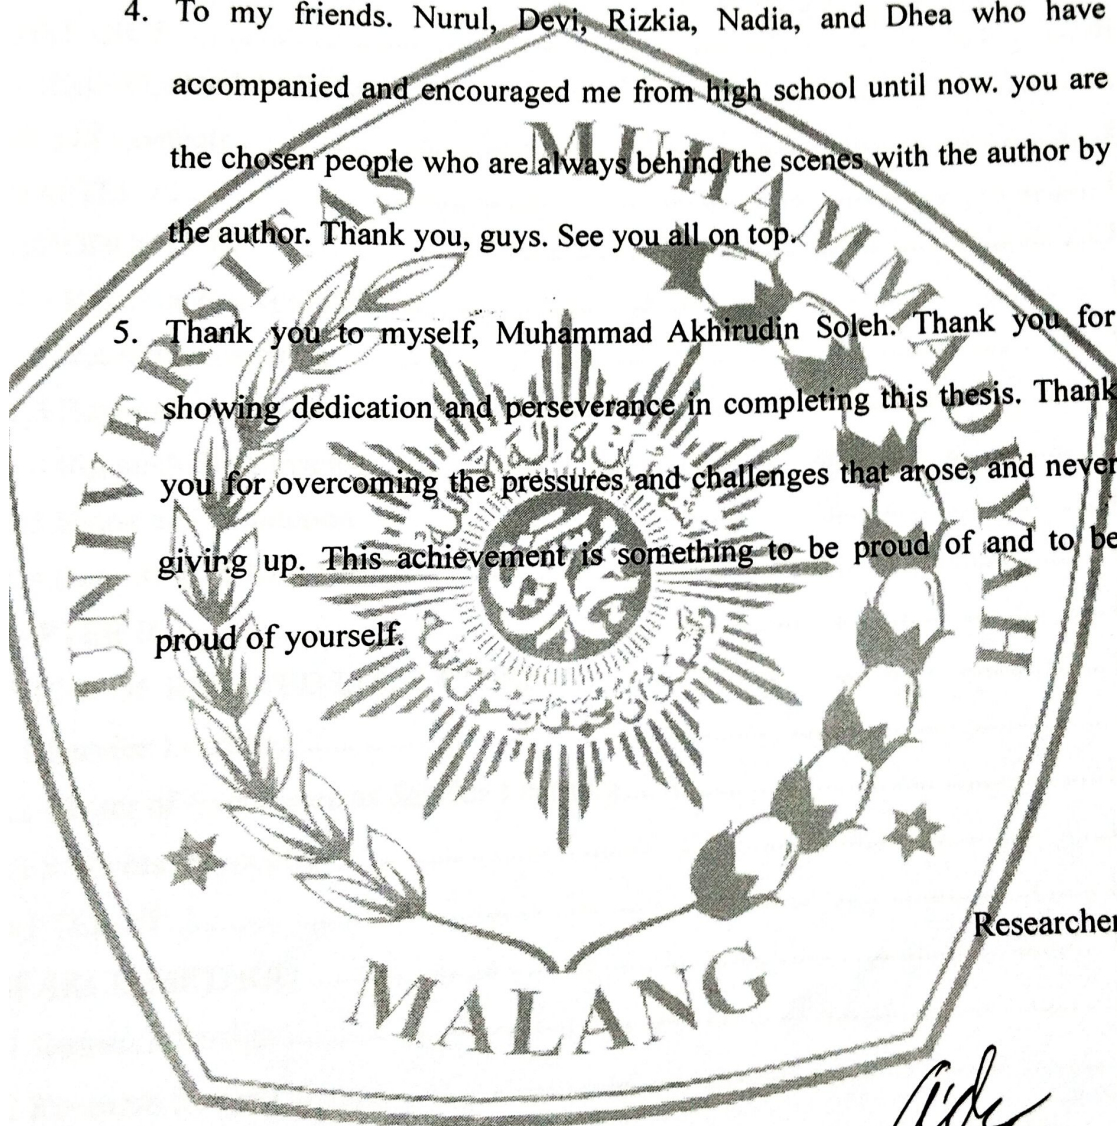 4. To my friends. Nurul, Devi, Rizkia, Nadia, and Dhea who have
accompanied and encouraged me from high school until now. you are
the chosen people who are always behind the scenes with the author by
the author. Thank you, guys. See you all on top.
5. Thank you to myself, Muhammad Akhirudin Soleh. Thank you for
showing dedication and perseverance in completing this thesis. Thank
you for overcoming the pressures and challenges that arose, and never
giving up. This achievement is something to be proud of and to be
proud of yourself.
UNIVERSITAS MUHAMMADIYAH
MALANG
Researcher